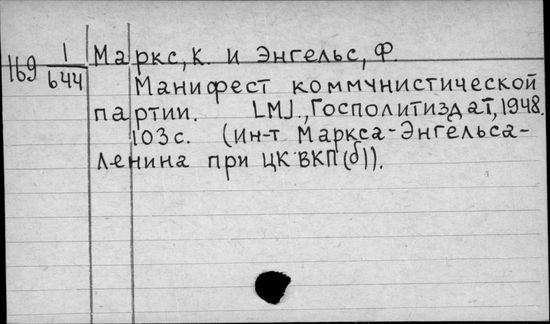 169 1/644 Маркс, К. и Энгельс, Ф.
Манифест коммунистической
партии. [М.], Госполитиздат, 1948.
103 с. (Ин-т Маркса-Энгельса-
Ленина при ЦК ВКП(б)).